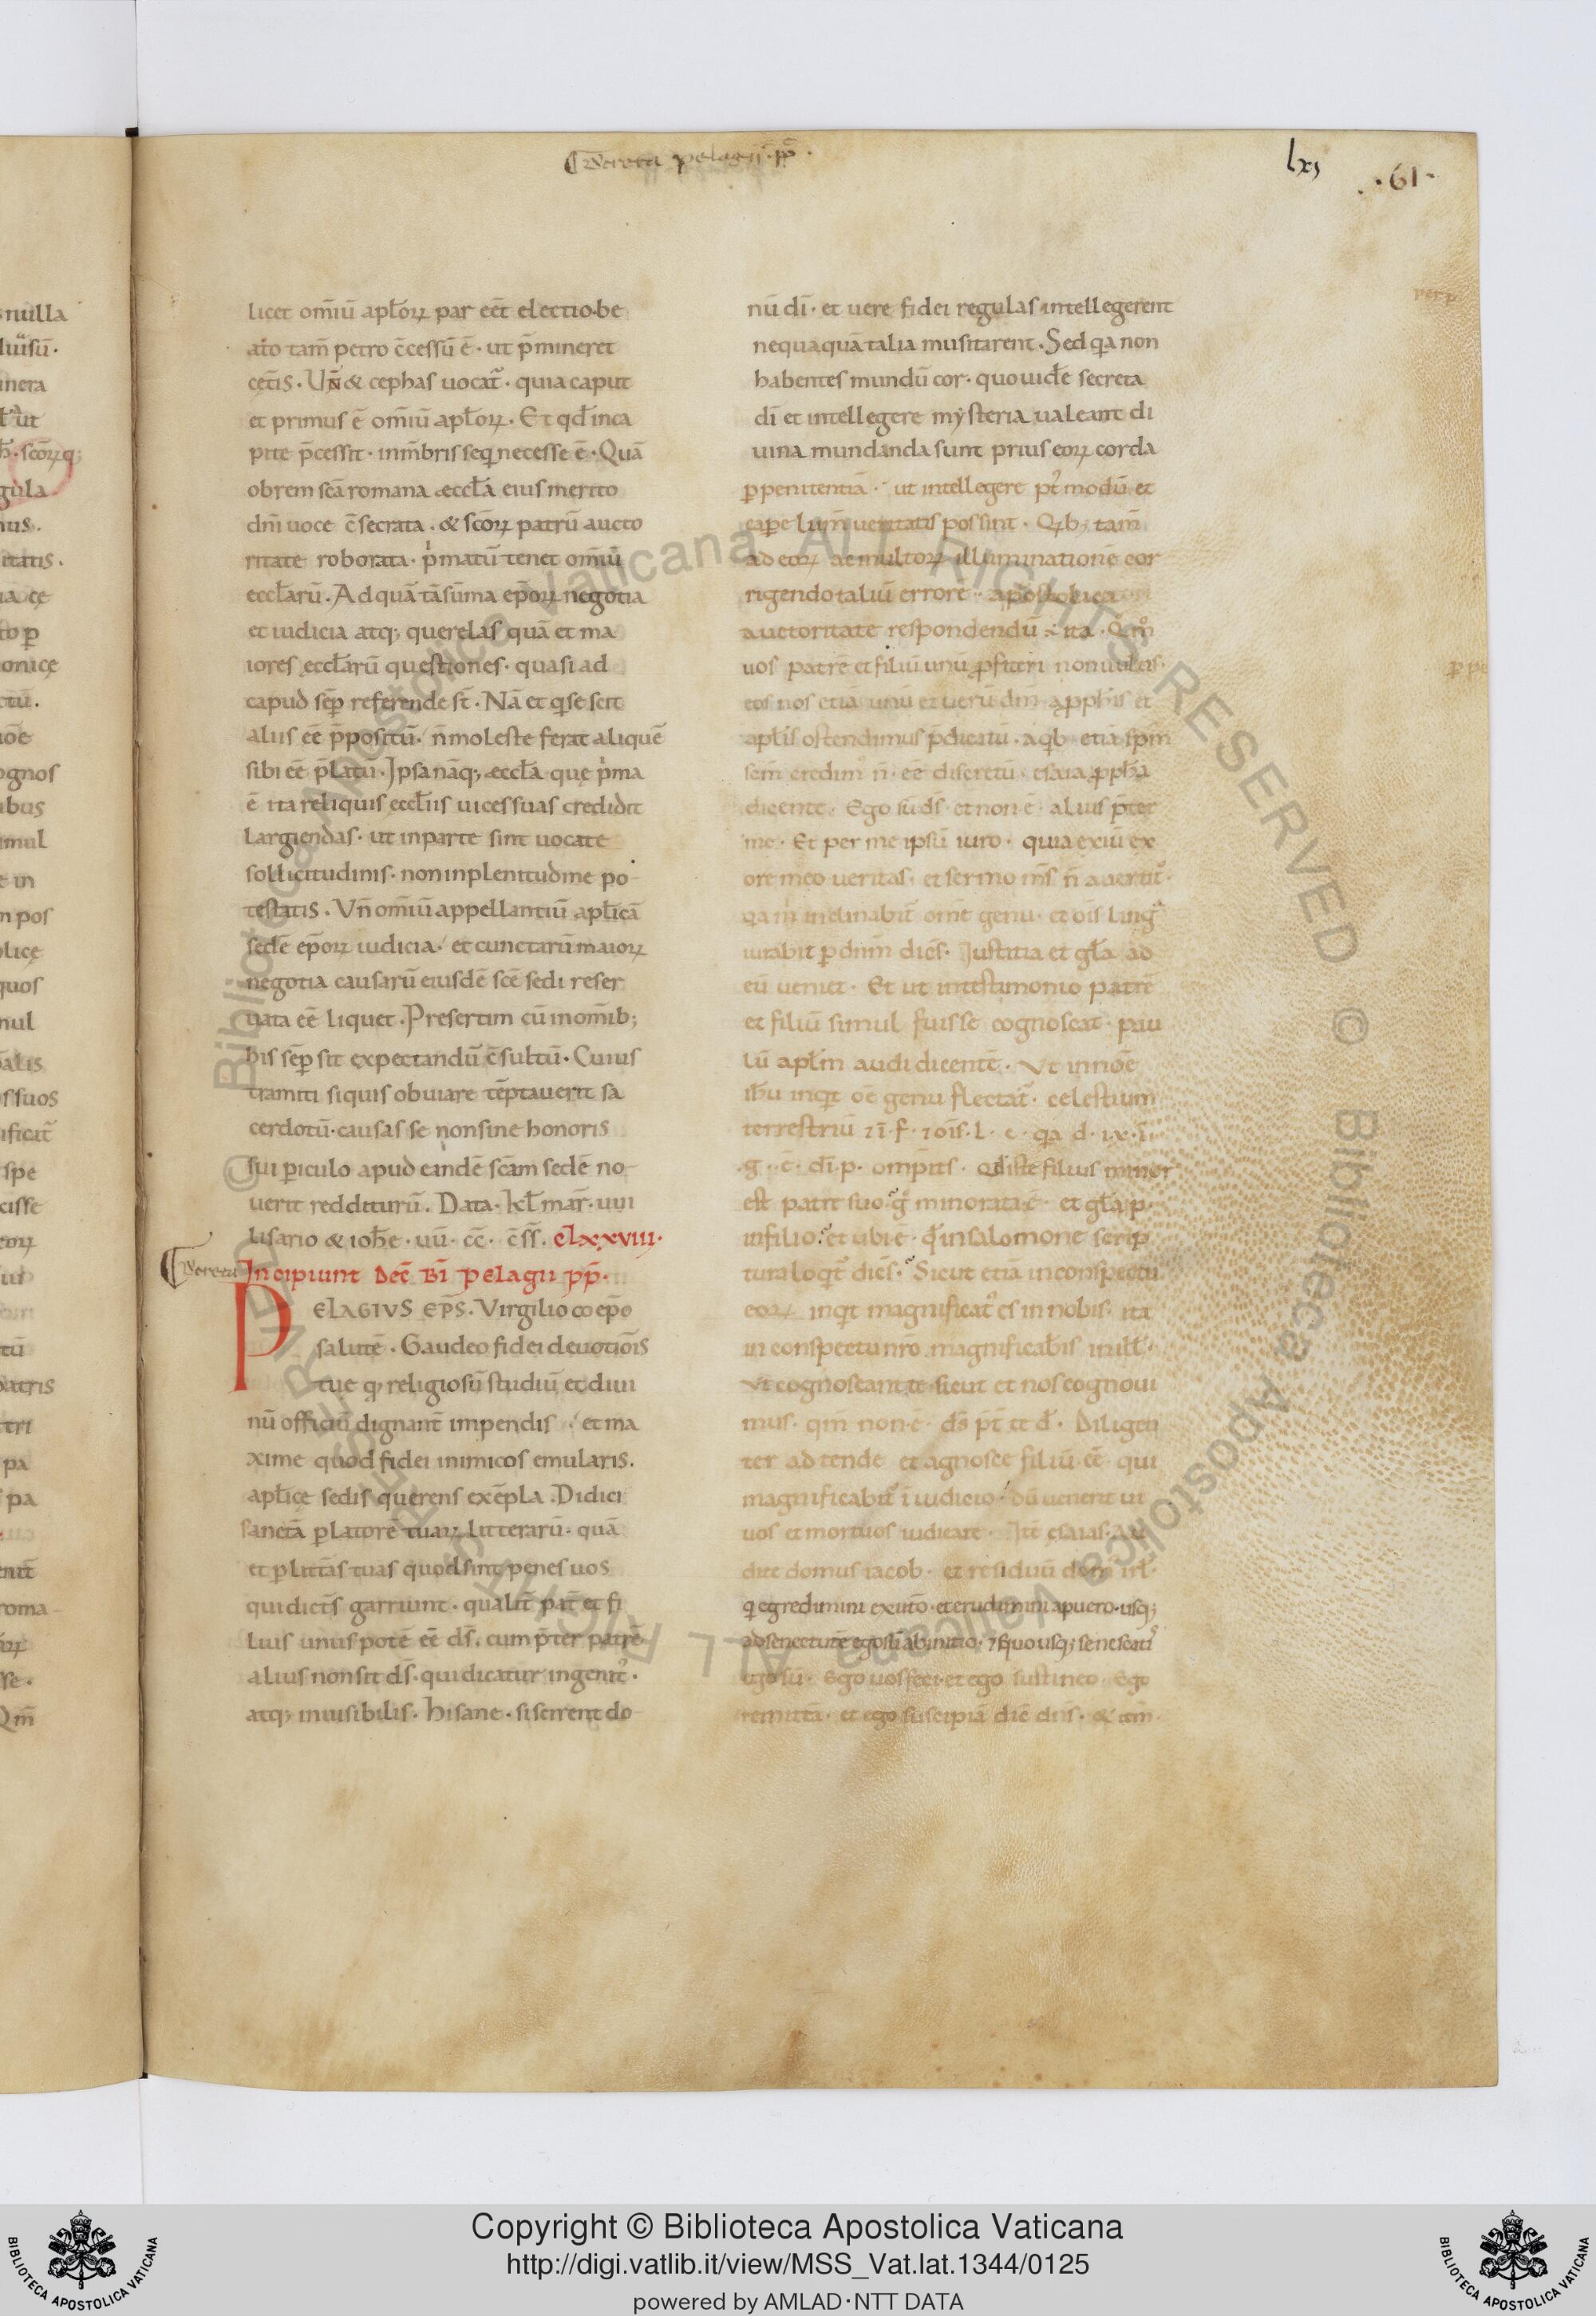 Decreta pelagii · pp̄ ·
lxj
· 61 ·
licet om̄iū apl̄oꝝ par eēt electio· be
ato tam̄ petro c̄cessū ē · ut p̄mineret
cęt̄is · Un̄ & cephas uocat᷑ · quia caput
et primus ē om̄iū apl̄oꝝ · Et qd̄ inca
pite p̄cessit · inm̄bris seqi necesse ē · Quā
obrem sc̄a romana eccl̄a eius merito
dn̄i uoce c̄secrata · & sc̄oꝝ patrū aucto
ritate roborata · p̍matū tenet om̄iū
eccl̄arū · Ad quā tā sūma ep̄oꝝ negotia
et iudicia atq; querelas quā et ma
iores eccl̄arū questiones · quasi ad
capud sēp referende st̄ · Nā et qi se scit
aliis eē p̄positū · n̄ moleste ferat aliquē
sibi eē p̄latū · Ipsa nāq; eccl̄a que p̍ma
ē ita reliquis eccl̄iis uices suas credidit
largiendas · ut inparte sint uocate
sollicitudinis · non inplenitudine po-
testatis · Vn̄ om̄iū appellantiū apl̄icā
sedē ep̄oꝝ iudicia · et cunctarū maioꝝ
negotia causarū eiusdē sc̄e sedi reser
uata eē liquet · Presertim cū inom̄ib;
his sēp sit expectandū c̄sultū · Cuius
tramiti siquis obuiare tēptauerit sa
cerdotū · causas se non sine honoris
sui ꝑiculo apud eandē sc̄am sedē no-
uerit redditurū · Data · kl̄ mar̄ · uui
lisario & ioh̄e · uū · cc̄ · c̄ss̄ · clxxviii ·
Decreta Incipiunt dec̄ bi̅ pelagii pp̄ ·
PELAGIVS EP̄S · Virgilio co ep̄o
salutē · Gaudeo fidei deuotiōis
tue q; religiosū studiū et diui
nū officiū dignant̄ impendis · et ma
xime quod fidei inimicos emularis ·
apl̄ice sedis querens exēpla · Didici
sanctā ꝑlatorē tuaꝝ litterarū · quā
et ꝑ litt̄as tuas quod sint penes uos
qui dict̄s garriunt · qualit̄ pat̄ et fi
lius unus pote eē ds̄ · cum p̄ter patrē
alius non sit ds̄ · qui dicatur ingenit᷒ ·
atq; inuisibilis · hi sane · si scirent do
nū di̅ · et uere fidei regulas intellegerent
nequaquā talia musitarent · Sed qa non
habentes mundū cor · quo uide secreta
di̅ et intellegere mẏsteria ualeant di
uina mundanda sunt prius eoꝝ corda
ꝑ penitentiā · ut intellegere pt᷒ modū et
capere lum̄ ueritatis possint · Qib; tam̄
ad eoꝝ ac multoꝝ illuminationē cor
rigendo taliū errorē · apostolica
auctoritate respondendū ÷ ita · Qm̊
uos patrē et filiū unū ꝓfiteri non uultis ·
eos nos etiā unū et uerū dm̄ a ꝓphis et
apl̄is ostendimus p̄dicatū · a qib etiā spm̄
scm̄ credim᷒ n̄ eē discretū · esaia ꝓph̄a
dicente · Ego sū ds̄ · et non ē · alius p̄ter
me · Et per me ipsū iuro · quia exiū ex
ore meo ueritas · et sermo ms̄ n̄ auertit᷑ ·
qa m̍ inclinabit᷑ ome genu · et ois̄ linga
iurabit ꝑ dnm̄ dices · Iustitia et gl̄a ad
eū ueniet · Et ut intestimonio patrē
et filiū simul fuisse cognoscat · pau
lū apl̄m audi dicentē · Vt innōe
ih̄u inqit oē genu flectat᷑ · celestium
terrestriū ⁊ ī · f · ⁊ ois̄ · l · c · qa d · i · x · i ·
g · ē · di̅ · p · omp̄tis · Qd iste filius minor
est patri suo · g minorata ē · et gl̄a p
in filio · et ubi ē · qd in salomone scrip
tura loqit᷑ dices · Sicut etiā inconspectu
eoꝝ inqit magnificat᷒ es in nobis · ita
in conspectu nro magnificabis in ill ·
Vt cognoscant te sicut et nos cognoui
mus · qm̄ non ē · ds̄ pt̄ te d · Diligen
ter adtende et agnosce filiū eē qui
magnificabit᷑ ī iudicio · dū uenerit ui
uos et mortuos iudicare · Itē esaias · Au
dite domus iacob · et residuū dom᷒ isrl̄ ·
qi egredimini ex uto · et erudimini a puero · usq;
ad senectutē ego sū ab initio · ⁊ squo usq; senescatis
ego sū · Ego uos feci · et ego sustineo · Ego
remittā · et ego suscipiā dic̄ dns̄ · & itm̄ ·
Copyright © Biblioteca Apostolica Vaticana
http://digi.vatlib.it/view/MSS_Vat.lat.1344/0125
powered by AMLAD·NTT DATA
BIBLIOTECA APOSTOLICA VATICANA
BIBLIOTECA APOSTOLICA VATICANA